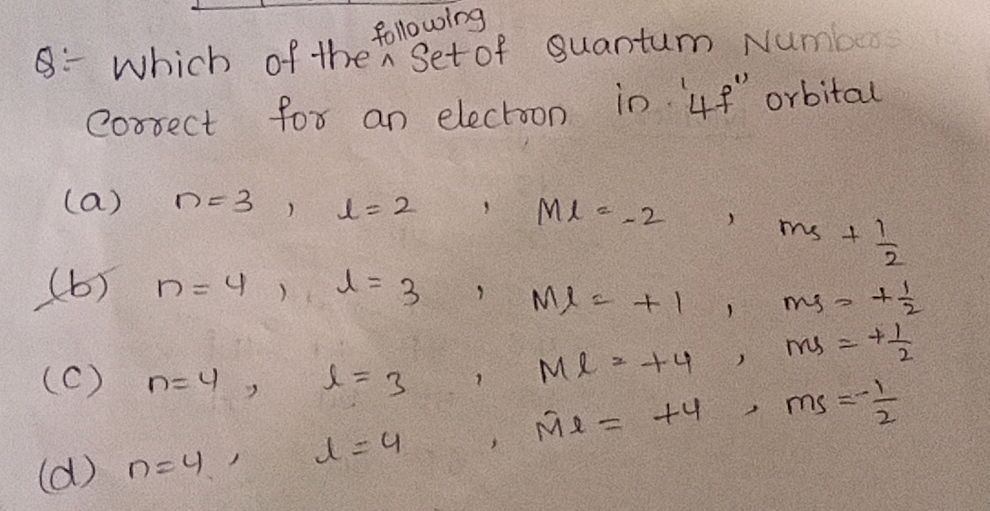 Q:- Which of the following Set of Quantum Numbers
Correct for an electron in '4f" orbital
(a) n=3, l=2, Ml = -2, ms + 1/2
(b) n=4, l=3, Ml = +1, ms = +1/2
(C) n=4, l=3, Ml = +4, ms = +1/2
(d) n=4, l=4, Ml = +4, ms = -1/2